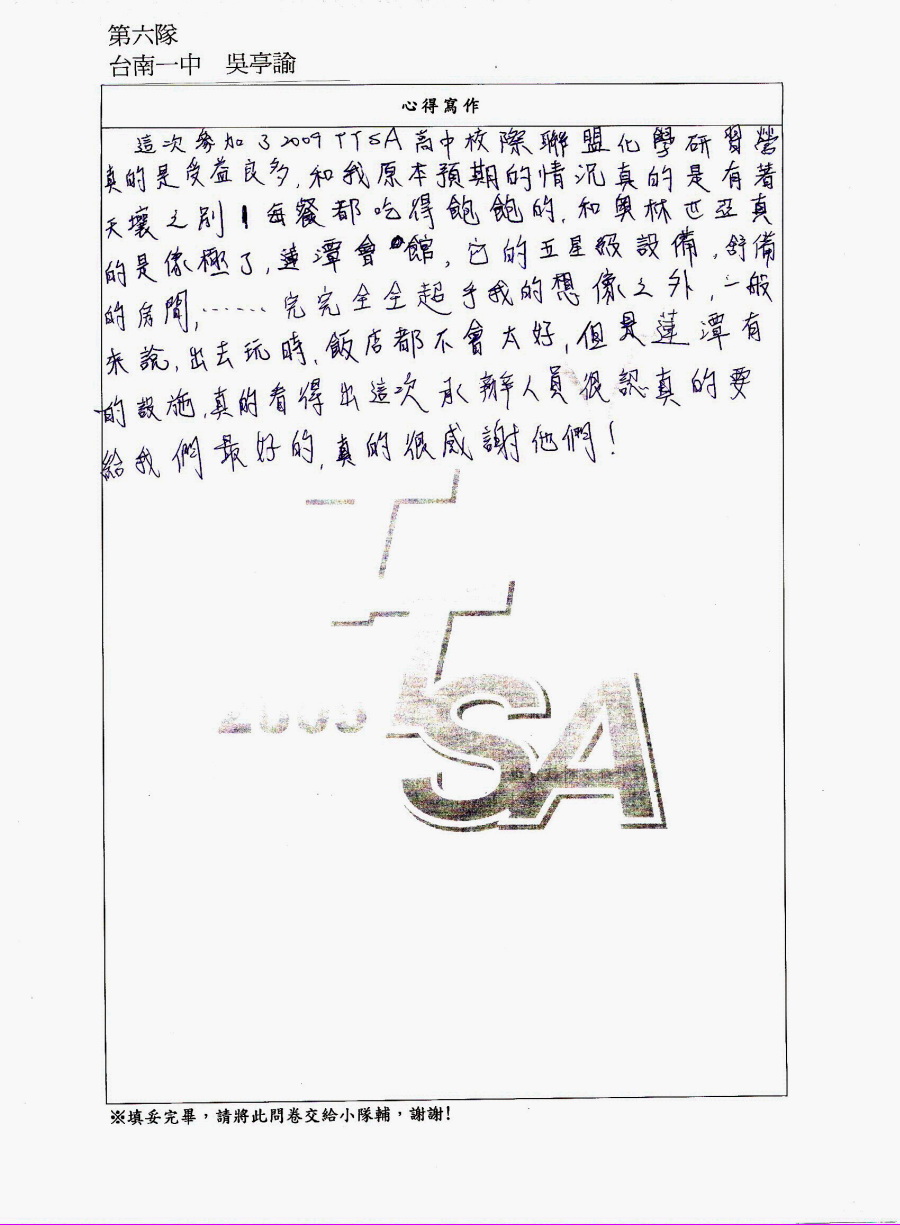 第六隊
台南一中　吳亭諭
心得寫作
這次參加了2009 TTSA高中校際聯盟化學研習營
真的是受益良多,和我原本預期的情況真的是有著
天壤之別!每餐都吃得飽飽的,和奧林匹亞真
的是像極了,蓮潭會館,它的五星級設備,舒備
的房間,……完完全全超乎我的想像之外,一般
來說,出去玩時,飯店都不會太好,但是蓮潭有
的設施,真的看得出這次承辦人員很認真的要
給我們最好的,真的很感謝他們!
TTSA
2009
※填妥完畢，請將此問卷交給小隊輔，謝謝!